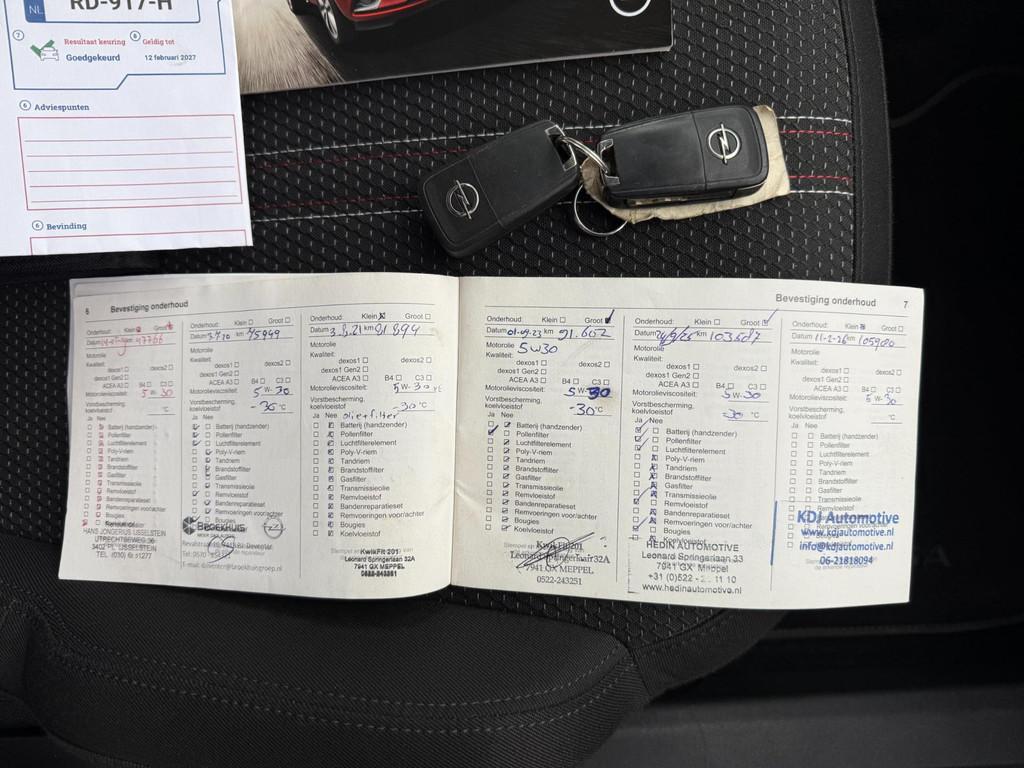 NL
RD-917-H
7
Resultaat keuring
Goedgekeurd
8
Geldig tot
12 februari 2027
6 Adviespunten
6 Bevinding
6 Bevestiging onderhoud
Onderhoud: Klein Groot
Datum km 47766
Motorolie
Kwaliteit:
dexos1
dexos1 Gen2
ACEA A3 B4 C3
Motorolieviscositeit: 5 W-30
Vorstbescherming,
koelvloeistof °C
Ja Nee
Batterij (handzender)
Pollenfilter
Luchtfilterelement
Poly-V-riem
Tandriem
Brandstoffilter
Gasfilter
Transmissieolie
Remvloeistof
Bandenreparatieset
Remvoeringen voor/achter
HANS JONGERIUS IJSSELSTEIN
UTRECHTSEWEG
3402 PL IJSSELSTEIN
Onderhoud: Klein Groot
Datum km 75949
Motorolie
Kwaliteit:
dexos1 dexos2
dexos1 Gen2
ACEA A3 B4 C3
Motorolieviscositeit: 5 W-30
Vorstbescherming,
koelvloeistof -36 °C
Ja Nee
Batterij (handzender)
Pollenfilter
Luchtfilterelement
Poly-V-riem
Tandriem
Brandstoffilter
Gasfilter
Transmissieolie
Remvloeistof
Bandenreparatieset
Remvoeringen voor/achter
Bougies
BROEKHUIS
Onderhoud: Klein Groot
Datum km 81894
Motorolie
Kwaliteit:
dexos1 dexos2
dexos1 Gen2
ACEA A3 B4 C3
Motorolieviscositeit: 5W-30
Vorstbescherming,
koelvloeistof -30 °C
Ja Nee oliefilter
Batterij (handzender)
Pollenfilter
Luchtfilterelement
Poly-V-riem
Tandriem
Brandstoffilter
Gasfilter
Transmissieolie
Remvloeistof
Bandenreparatieset
Remvoeringen voor/achter
Bougies
Koelvloeistof
KwikFit 201
Leonard Springerlaan 32A
7941 GX MEPPEL
0522-243251
Bevestiging onderhoud 7
Onderhoud: Klein Groot
Datum 01-09-23 km 91.602
Motorolie 5W30
Kwaliteit:
dexos1 dexos2
dexos1 Gen2
ACEA A3 B4 C3
Motorolieviscositeit: 5 W-30
Vorstbescherming,
koelvloeistof -30 °C
Ja Nee
Batterij (handzender)
Pollenfilter
Luchtfilterelement
Poly-V-riem
Tandriem
Brandstoffilter
Gasfilter
Transmissieolie
Remvloeistof
Bandenreparatieset
Remvoeringen voor/achter
Bougies
Koelvloeistof
KwikFit 201
Leonard Springerlaan 32A
7941 GX MEPPEL
0522-243251
Onderhoud: Klein Groot
Datum km 103587
Motorolie
Kwaliteit:
dexos1 dexos2
dexos1 Gen2
ACEA A3 B4 C3
Motorolieviscositeit: 5 W-30
Vorstbescherming,
koelvloeistof -30 °C
Ja Nee
Batterij (handzender)
Pollenfilter
Luchtfilterelement
Poly-V-riem
Tandriem
Brandstoffilter
Gasfilter
Transmissieolie
Remvloeistof
Bandenreparatieset
Remvoeringen voor/achter
Bougies
Koelvloeistof
HEDIN AUTOMOTIVE
Leonard Springerlaan 33
7941 GX Meppel
www.hedinautomotive.nl
Onderhoud: Klein Groot
Datum 11-2-26 km 105920
Motorolie
Kwaliteit:
dexos1 dexos2
dexos1 Gen2
ACEA A3 B4 C3
Motorolieviscositeit: 5 W-30
Vorstbescherming,
koelvloeistof °C
Ja Nee
Batterij (handzender)
Pollenfilter
Luchtfilterelement
Poly-V-riem
Tandriem
Brandstoffilter
Gasfilter
Transmissieolie
Remvloeistof
Bandenreparatieset
Remvoeringen voor/achter
KDJ Automotive
www.kdjautomotive.nl
info@kdjautomotive.nl
06-21818094